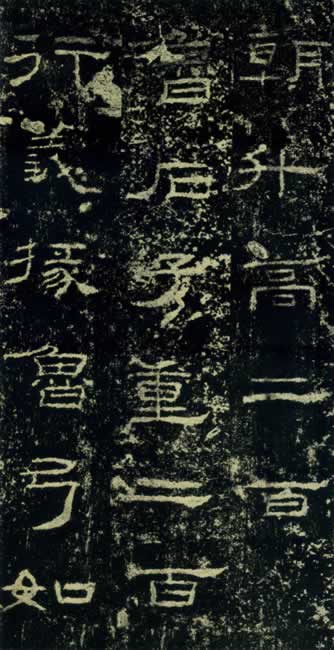 朝升高二百
魯石子重二百
行義掾魯弓如